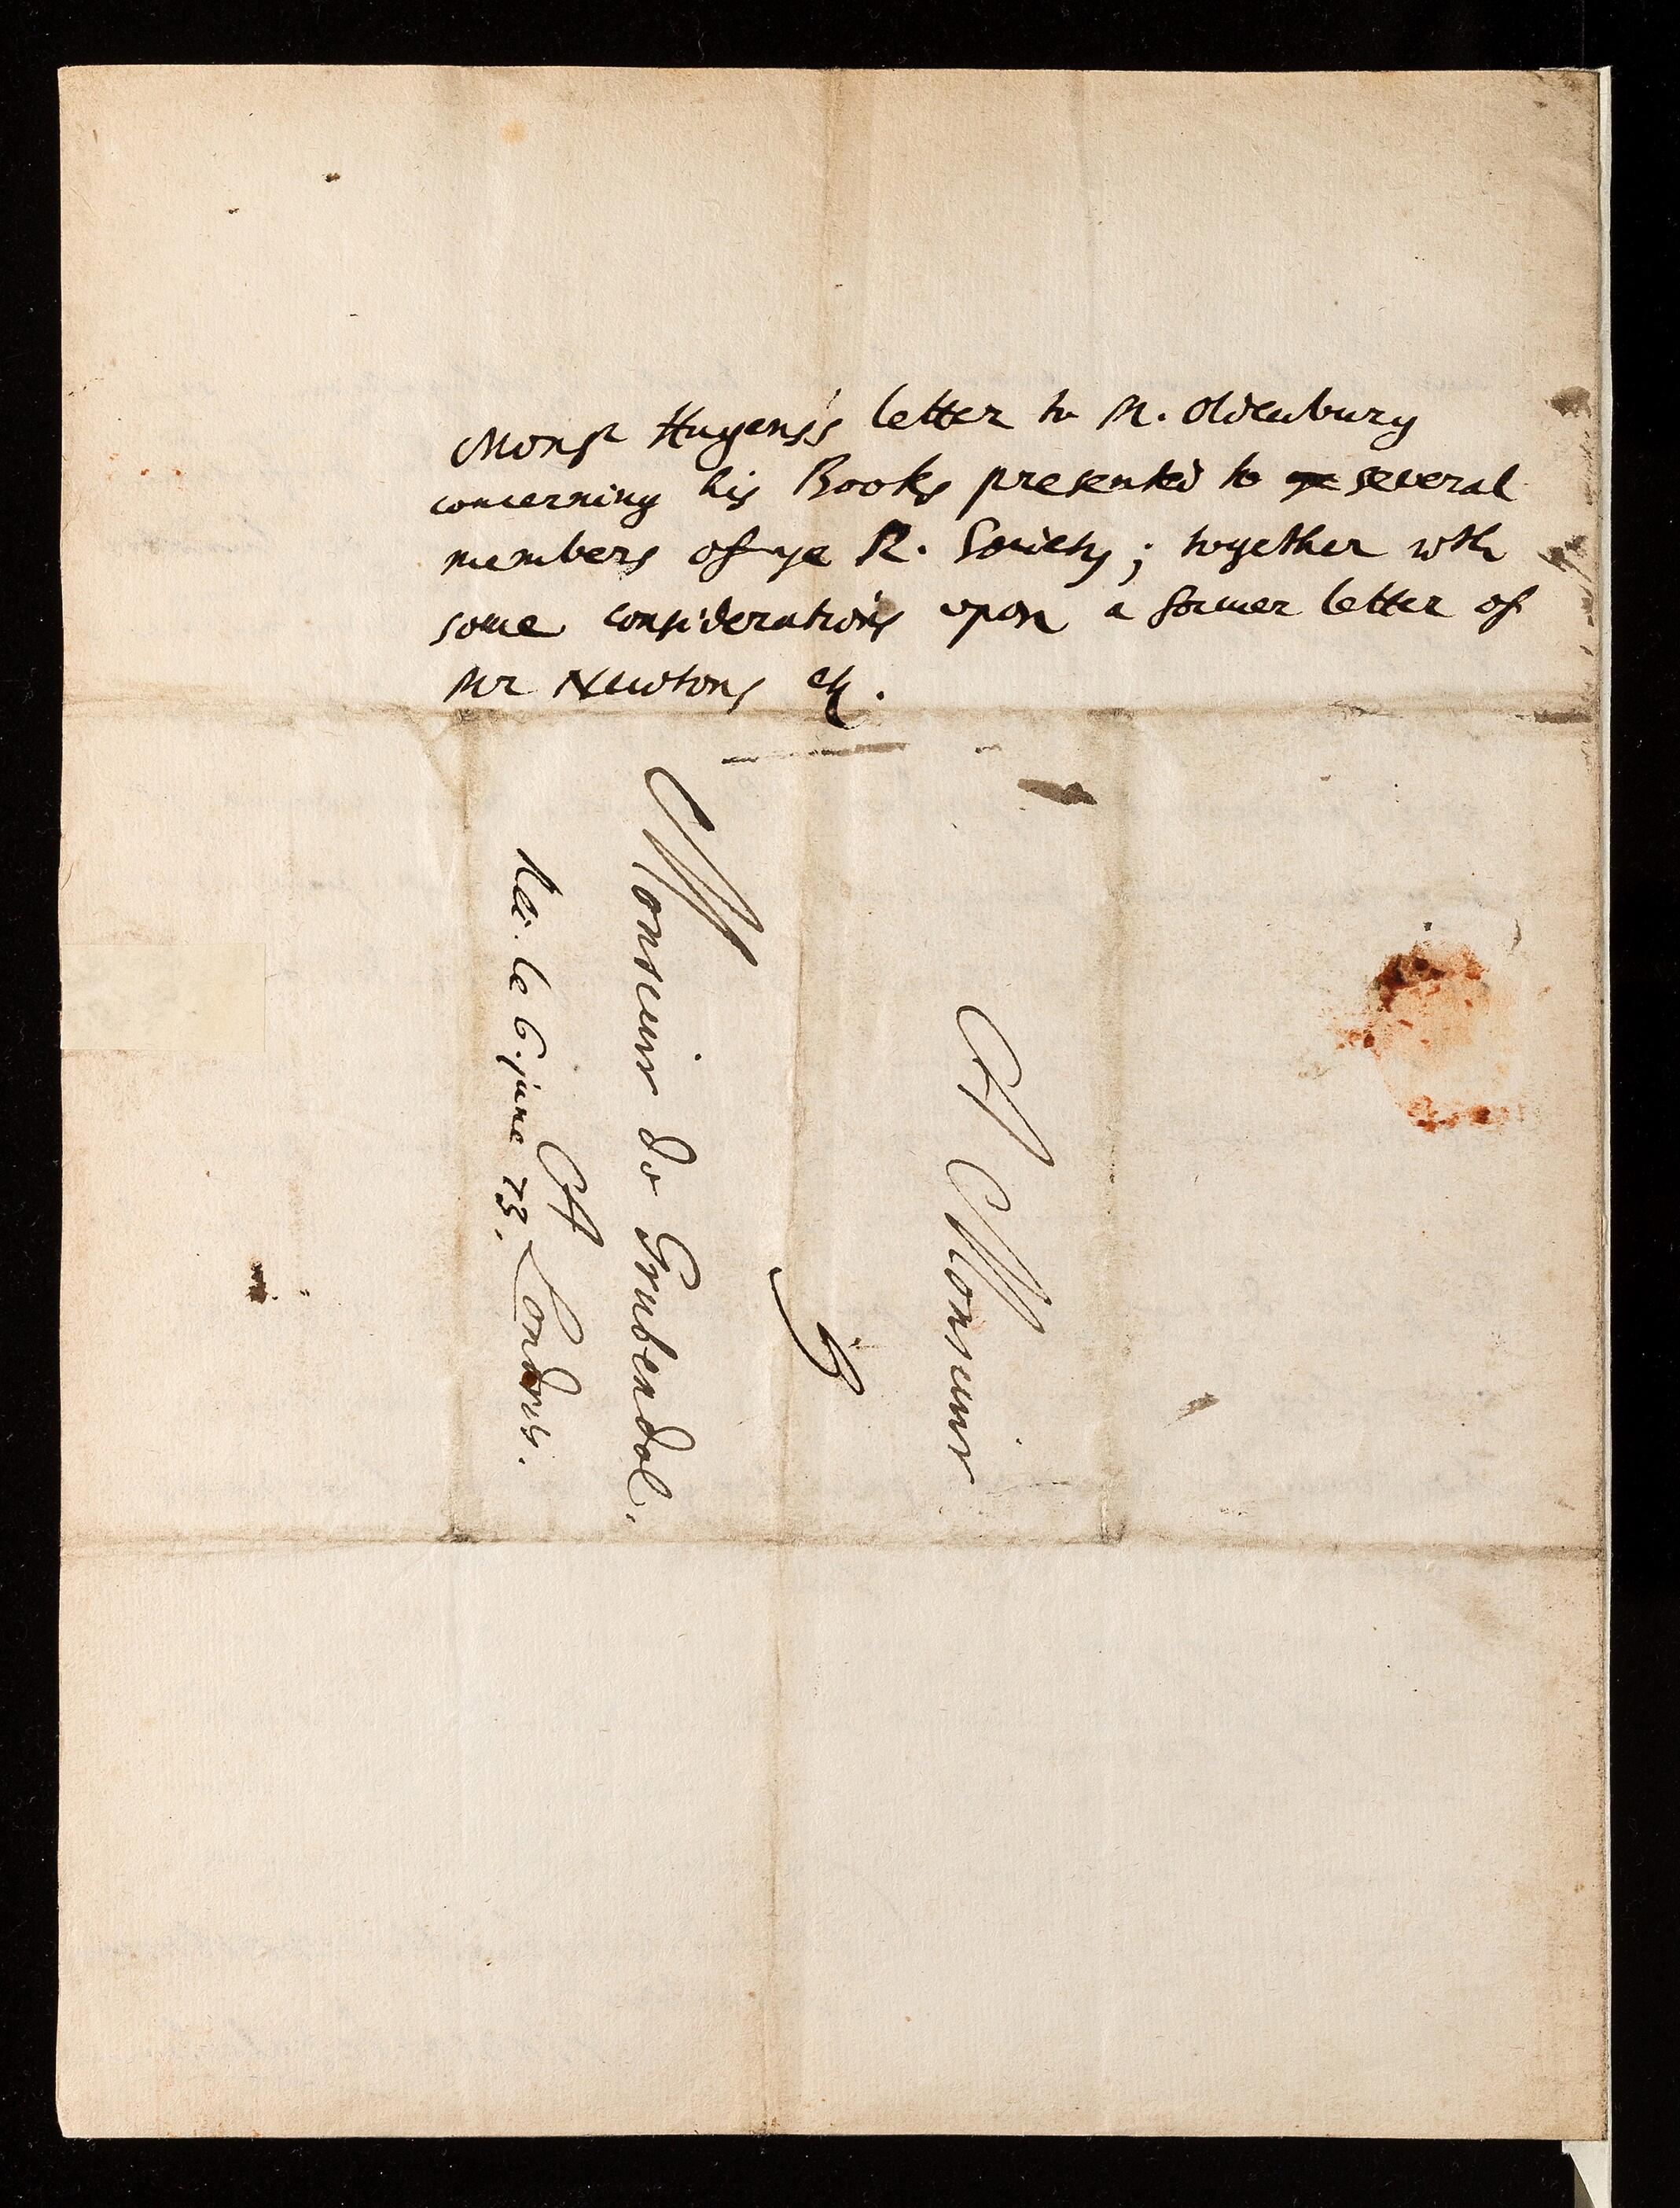 Monsr Hugens's letter to M. Oldenburg
concerning his Books presented to several
members of ye R. Society; together wth
some considerations upon a former letter of
Mr Newtons etc.
A Monsieur
Monsieur de Grubendol,
A Londres.
Rec. le 6. june 73.